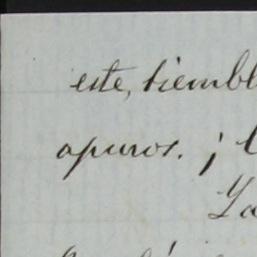 este, tiembl
apuros. ¡
Ya